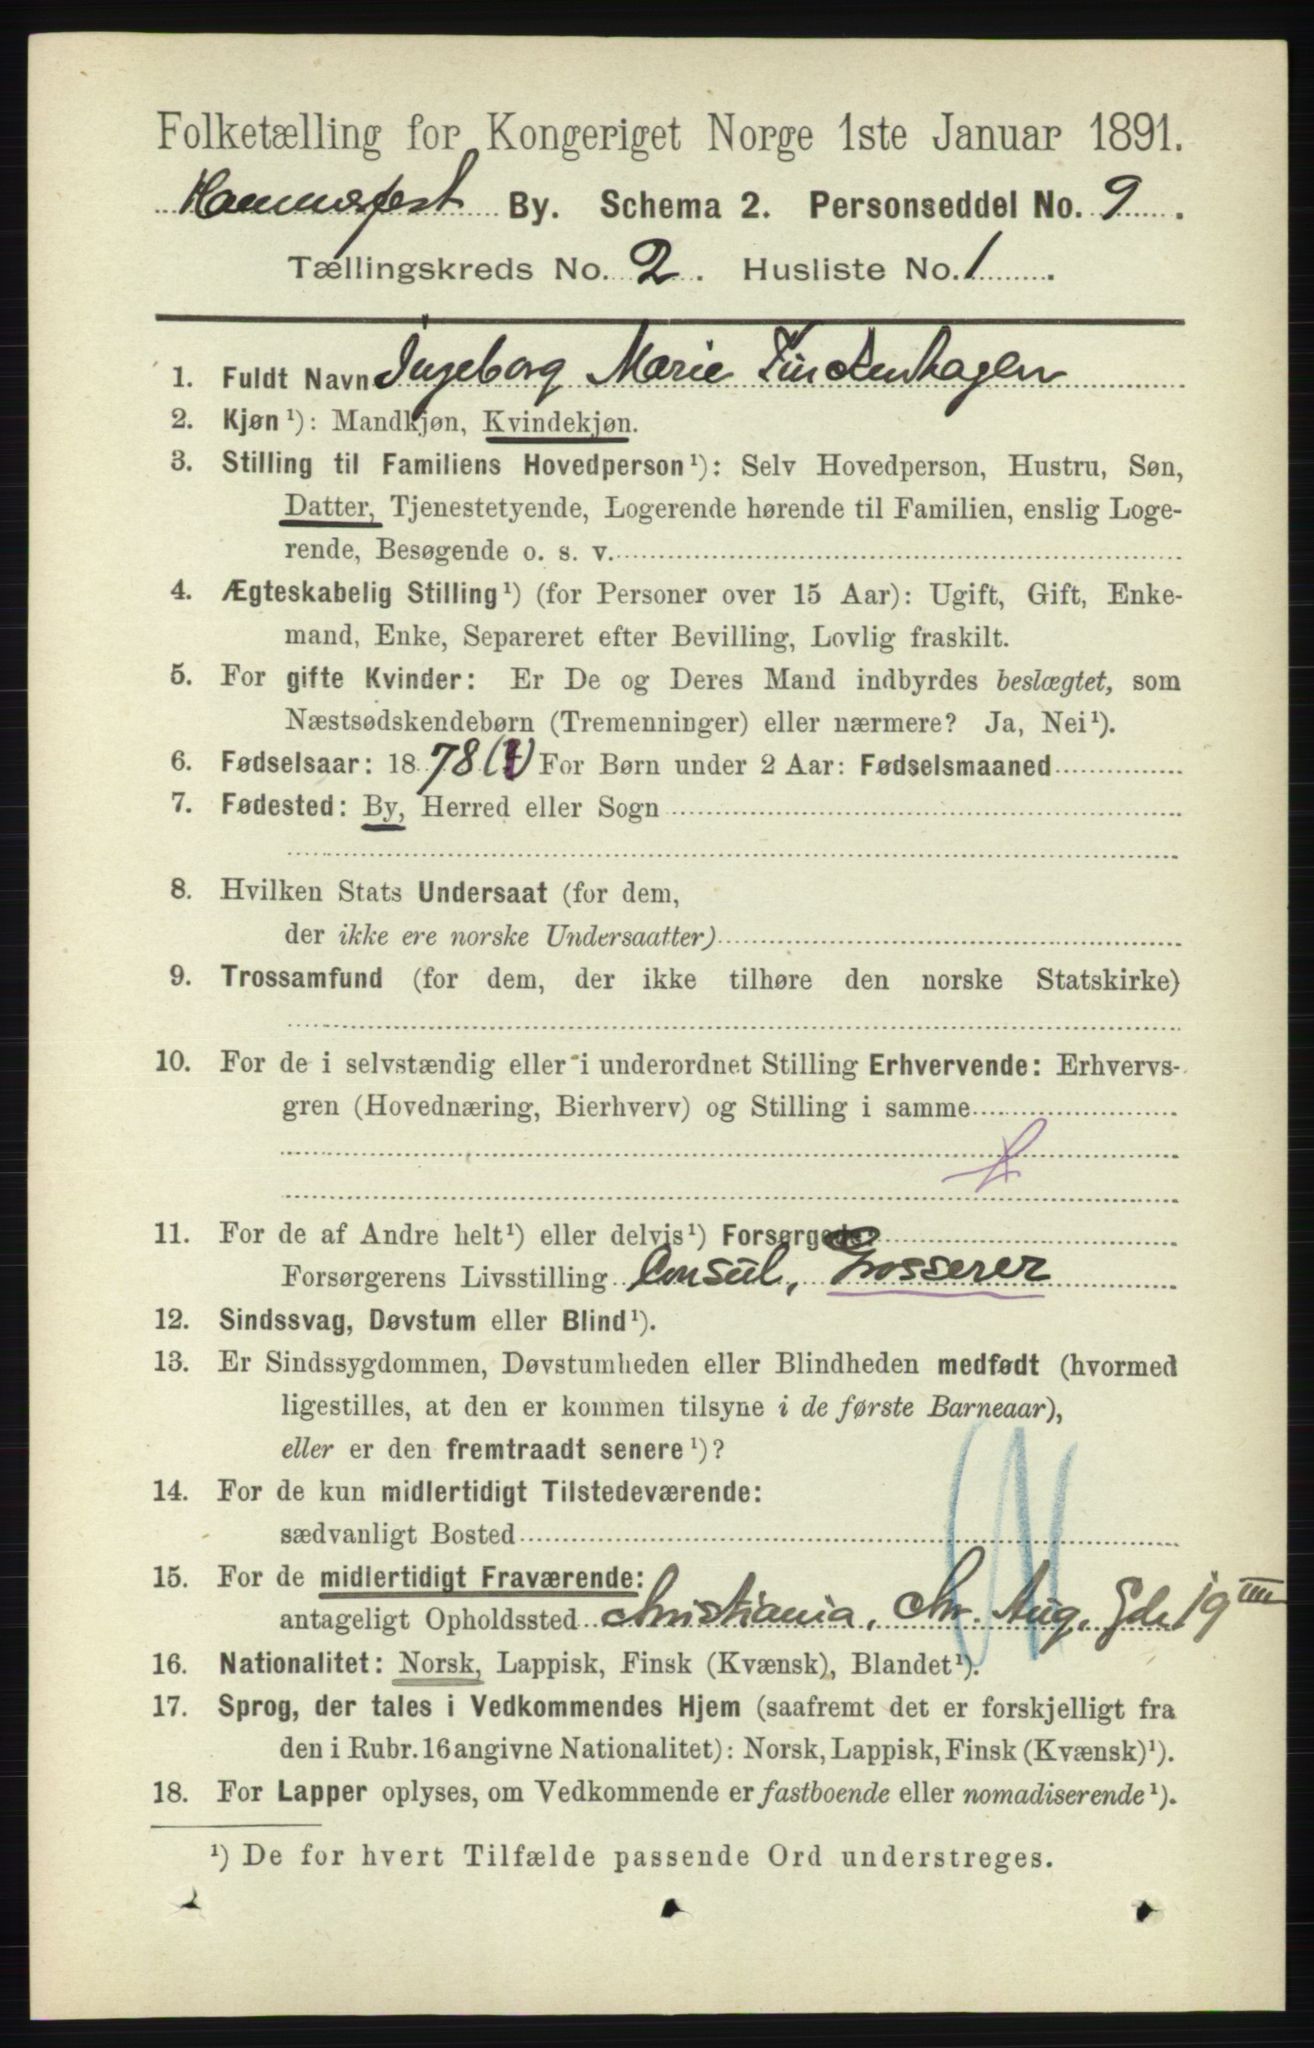 Folketælling for Kongeriget Norge 1ste Januar 1891.
Hammerfest By. Schema 2. Personseddel No. 9.
Tællingskreds No. 2. Husliste No. 1.
1. Fuldt Navn Ingeborg Marie Finckenhagen
2. Kjøn¹): Mandkjøn, Kvindekjøn.
3. Stilling til Familiens Hovedperson¹): Selv Hovedperson, Hustru, Søn,
Datter, Tjenestetyende, Logerende hørende til Familien, enslig Loge-
rende, Besøgende o. s. v.
4. Ægteskabelig Stilling¹) (for Personer over 15 Aar): Ugift, Gift, Enke-
mand, Enke, Separeret efter Bevilling, Lovlig fraskilt.
5. For gifte Kvinder: Er De og Deres Mand indbyrdes beslægtet, som
Næstsødskendebørn (Tremenninger) eller nærmere? Ja, Nei¹).
6. Fødselsaar: 1878 For Børn under 2 Aar: Fødselsmaaned
7. Fødested: By, Herred eller Sogn
8. Hvilken Stats Undersaat (for dem,
der ikke ere norske Undersaatter)
9. Trossamfund (for dem, der ikke tilhøre den norske Statskirke)
10. For de i selvstændig eller i underordnet Stilling Erhvervende: Erhvervs-
gren (Hovednæring, Bierhverv) og Stilling i samme
11. For de af Andre helt¹) eller delvis¹) Forsørgede:
Forsørgerens Livsstilling Consul, Grosserer
12. Sindssvag, Døvstum eller Blind¹).
13. Er Sindssygdommen, Døvstumheden eller Blindheden medfødt (hvormed
ligestilles, at den er kommen tilsyne i de første Barneaar),
eller er den fremtraadt senere¹)?
14. For de kun midlertidigt Tilstedeværende:
sædvanligt Bosted
15. For de midlertidigt Fraværende:
antageligt Opholdssted Christiania, Chr. Aug. Gd. 19 III
16. Nationalitet: Norsk, Lappisk, Finsk (Kvænsk), Blandet¹).
17. Sprog, der tales i Vedkommendes Hjem (saafremt det er forskjelligt fra
den i Rubr. 16 angivne Nationalitet): Norsk, Lappisk, Finsk (Kvænsk)¹).
18. For Lapper oplyses, om Vedkommende er fastboende eller nomadiserende¹).
¹) De for hvert Tilfælde passende Ord understreges.